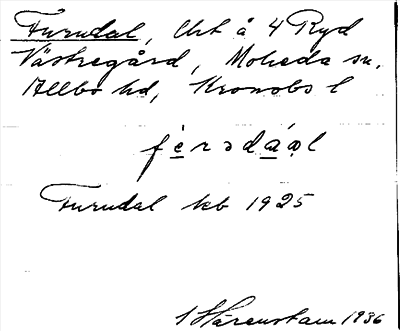 Furudal, Urt å 4 Ryd
Västregård, Moheda sn.
Allbo hd, Kronobs l
fèrɘdáal
Furudal kb 1925
Härenstam 1936